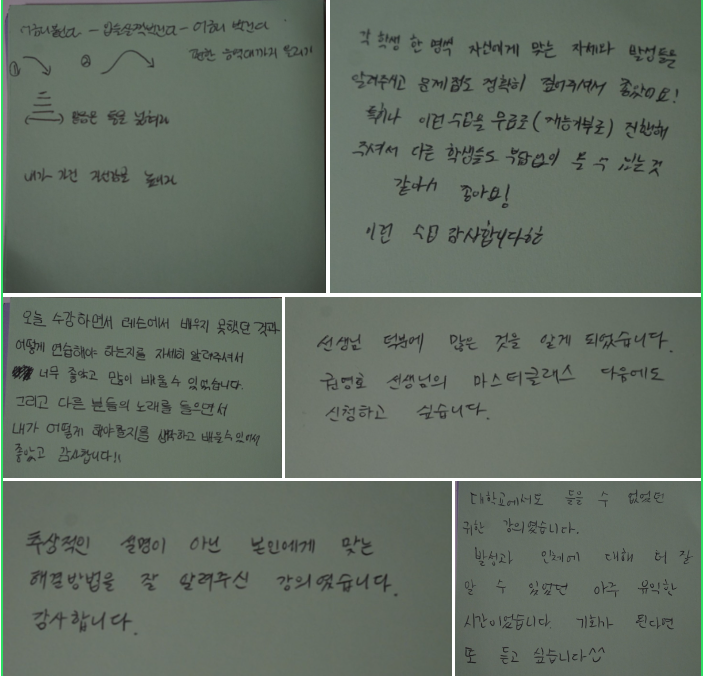 편한 음역대까지 올리기
①
②
발음은 등을 넓혀라
내가 가진
각 학생 한 명씩 자신에게 맞는 자세와 발성들을
알려주시고 문제점도 정확히 짚어주셔서 좋았어요!
특히나 이런 수업을 무료로(재능기부로) 진행해
주셔서 다른 학생들도 부담없이 들을 수 있는 것
같아서 좋아요!
이런 수업 감사합니다
오늘 수강하면서 레슨에서 배우지 못했던 것과
어떻게 연습해야 하는지를 자세히 알려주셔서
너무 좋았고 많이 배울 수 있었습니다.
그리고 다른 분들의 노래를 들으면서
내가 어떻게 해야할지를 생각하고 배울수있어서
좋았고 감사합니다!!
선생님 덕분에 많은 것을 알게 되었습니다.
권영호 선생님의 마스터클래스 다음에도
신청하고 싶습니다.
추상적인 설명이 아닌 본인에게 맞는
해결방법을 잘 알려주신 강의였습니다.
감사합니다.
대학교에서도 들을 수 없었던
귀한 강의였습니다.
발성과 인체에 대해 더 잘
알 수 있었던 아주 유익한
시간이었습니다. 기회가 된다면
또 듣고 싶습니다^^